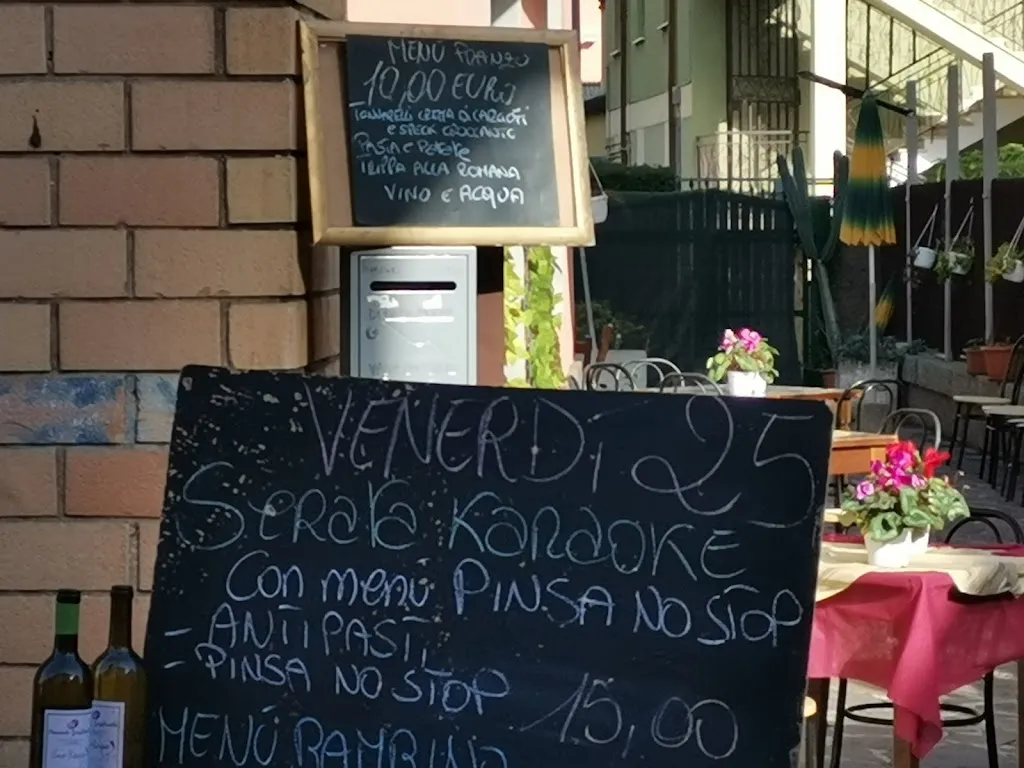 MENÙ PRANZO
10,00 EURO
TONNARELLI CREMA DI CARCIOFI
E SPECK CROCCANTE
PASTA E PATATE
TRIPPA ALLA ROMANA
VINO E ACQUA
VENERDÌ 25
SERATA KARAOKE
CON MENU PINSA NO STOP
- ANTIPASTI
- PINSA NO STOP 15,00
MENÙ BAMBINO